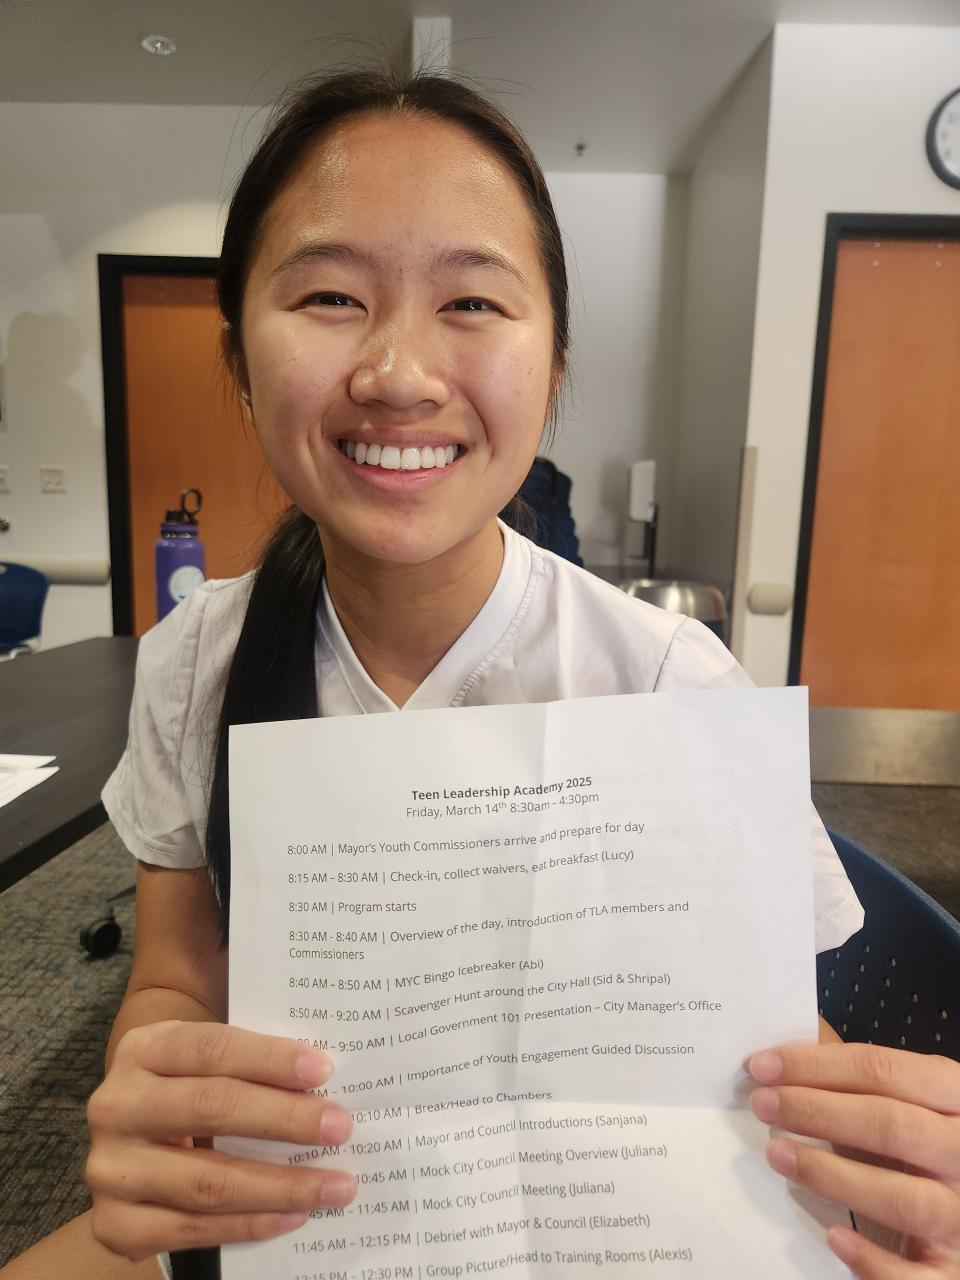 Teen Leadership Academy 2025
Friday, March 14th 8:30am – 4:30pm
8:00 AM | Mayor's Youth Commissioners arrive and prepare for day
8:15 AM – 8:30 AM | Check-in, collect waivers, eat breakfast (Lucy)
8:30 AM | Program starts
8:30 AM - 8:40 AM | Overview of the day, introduction of TLA members and
Commissioners
8:40 AM – 8:50 AM | MYC Bingo Icebreaker (Abi)
8:50 AM - 9:20 AM | Scavenger Hunt around the City Hall (Sid & Shripal)
AM - 9:50 AM | Local Government 101 Presentation – City Manager's Office
AM – 10:00 AM | Importance of Youth Engagement Guided Discussion
10:10 AM | Break/Head to Chambers
10:10 AM - 10:20 AM | Mayor and Council Introductions (Sanjana)
10:45 AM | Mock City Council Meeting Overview (Juliana)
45 AM – 11:45 AM | Mock City Council Meeting (Juliana)
11:45 AM – 12:15 PM | Debrief with Mayor & Council (Elizabeth)
12:15 PM – 12:30 PM | Group Picture/Head to Training Rooms (Alexis)